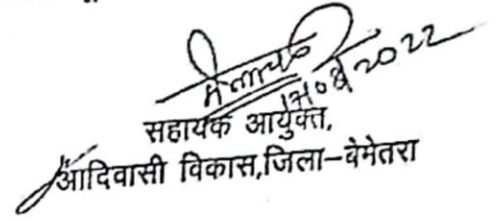 2022
सहायक आयुक्त,
आदिवासी विकास,जिला-वेमेतरा